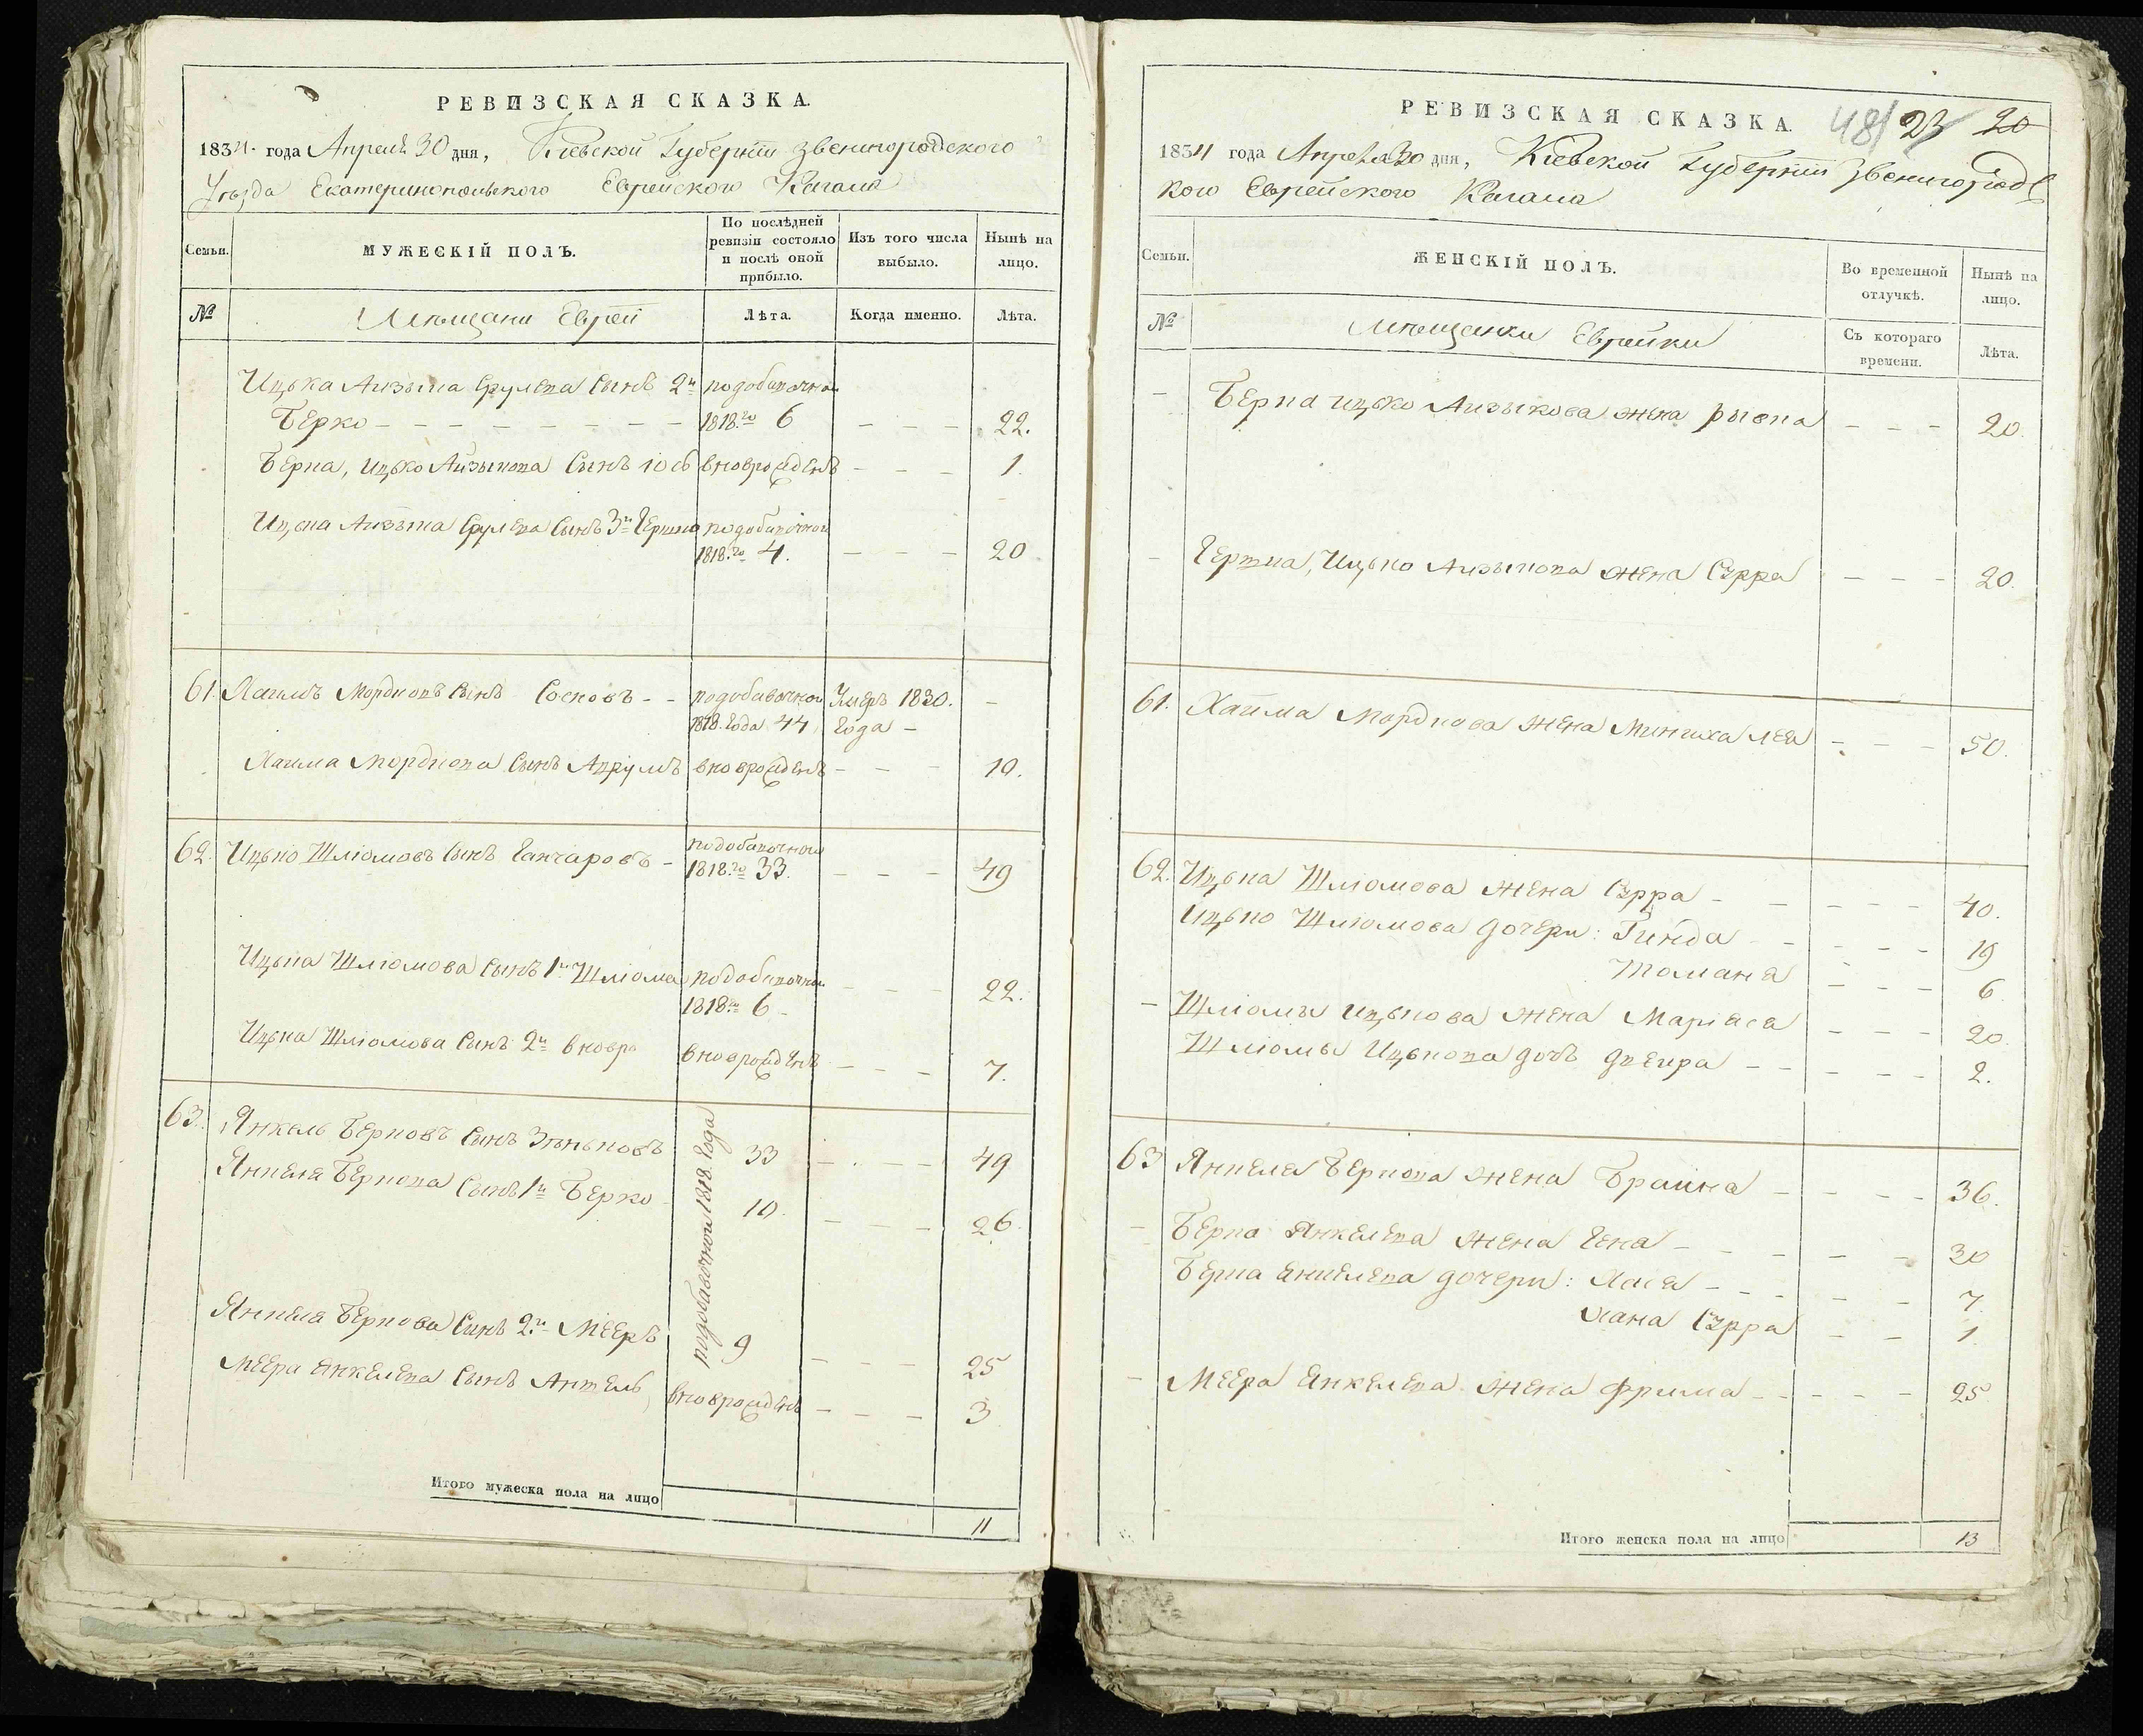 РЕВИЗСКАЯ СКАЗКА.
1834 года Апреля 30 дня, Кіевской Губерніи Звенигородского
Уезда Екатеринопольского Еврейского Кагала
Семьи.
МУЖЕСКІЙ ПОЛЪ.
По послѣдней ревизіи состояло и послѣ оной прибыло.
Изъ того числа выбыло.
Нынѣ на лицо.
№
Мѣщани Евреи
Лѣта.
Когда именно.
Лѣта.
Ицька Айзыка Срулева Сынъ 2й подобавочной
Берко 1818го 6 22.
Берка, Ицько Айзыкова Сынъ вноврожденъ 1.
Ицька Айзыка Срулева Сынъ 3й Гершко подобавочной
1818го 4. 20
61. Хаимъ Мордковъ Сынъ Сосновъ подобавочной Умеръ 1830.
1818. Года 44 Года
Хаима Мордкова Сынъ вноврожденъ 10.
62. Ицько Шліомовъ Сынъ Ганчаровъ подобавочной
1818го 33. 49
Ицька Шліомова Сынъ 1й Шліома подобавочной
1818го 6 22.
Ицька Шліомова Сынъ 2й вновро вноврожденъ 7.
63. Янкель Берковъ Сынъ Зѣньковъ 33 49
Янкеля Беркова Сынъ 1й Берко 10. 26.
подобавочной 1818. Года
Янкеля Беркова Сынъ 2й Мееръ 9 25
Меера Янкелева Сынъ вноврожденъ 3
Итого мужеска пола на лицо
11
РЕВИЗСКАЯ СКАЗКА.
48/ 23 20
1834 года Апреля 30 дня, Кіевской Губерніи Звенигородс
кого Еврейского Кагала
Семьи.
ЖЕНСКІЙ ПОЛЪ.
Во временной отлучкѣ.
Нынѣ на лицо.
№
Мѣщанки Еврейки
Съ котораго времени.
Лѣта.
Берка Ицько Айзыкова жена 20.
Гершка, Ицько Айзыкова жена Сурра 20.
61. Хаима Мордкова жена 50.
62. Ицька Шліомова жена Сурра 40.
Ицько Шліомова дочери: Гинда 19
6
Шліомы Ицькова жена Маріася 20.
Шліомы Ицькова дочь Двейра 2.
63 Янкеля Беркова жена Браина 36.
Берка Янкелева жена Гена 30
Берка Янкелева дочери: Хася 7.
Хана Сурра 1.
Меера Янкелева жена Фрима 25
Итого женска пола на лицо
13